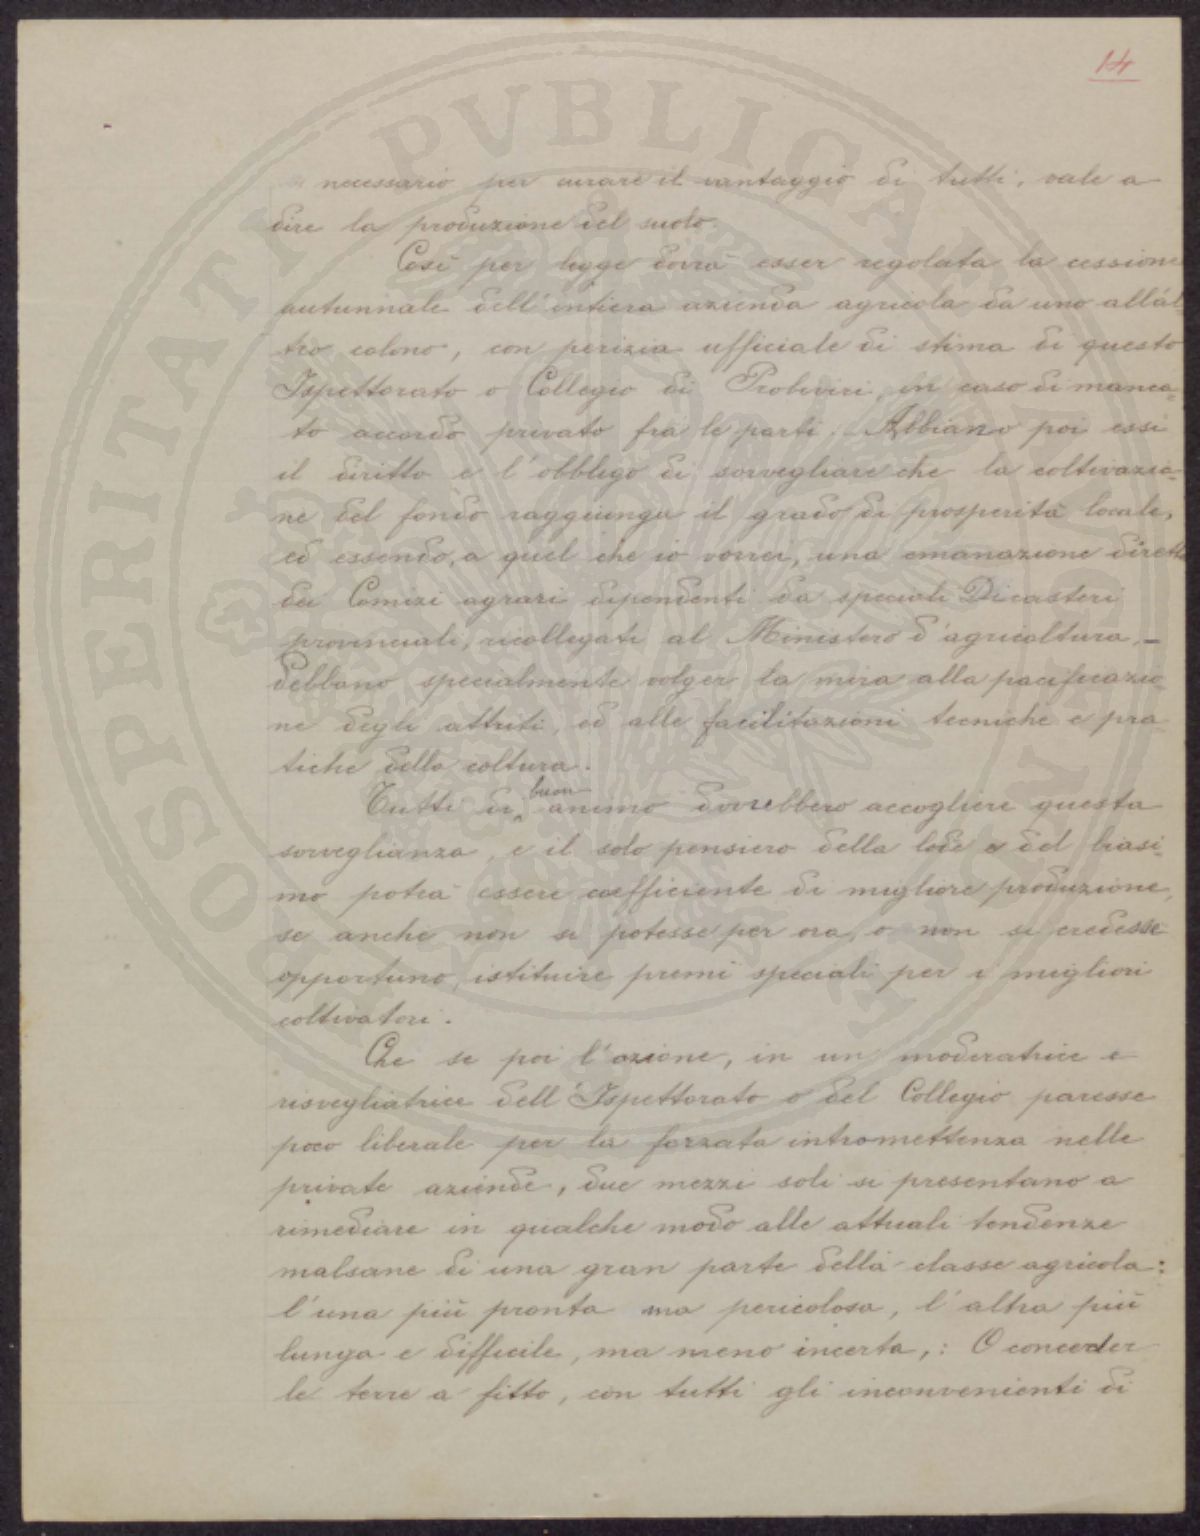 14
necessario per curare il vantaggio di tutti, vale a
dire la produzione del suolo.
Così per legge dovrà esser regolata la cessione
autunnale dell'intiera azienda agricola da uno all'al-
tro colono, con perizia ufficiale di stima di questo
Ispettorato o Collegio di Probiviri, in caso di manca-
to accordo privato fra le parti. Abbiano poi essi
il diritto e l'obbligo di sorvegliare che la coltivazio-
ne del fondo raggiunga il grado di prosperità locale,
ed essendo, a quel che io vorrei, una emanazione diretta
dei Comizi agrari dipendenti da speciali Dicasteri
provinciali, ricollegati al Ministero d'agricoltura, -
debbano specialmente volger la mira alla pacificazio-
ne degli attriti, ed alle facilitazioni tecniche e pra-
tiche della coltura.
Tutti di buon animo dovrebbero accogliere questa
sorveglianza, e il solo pensiero della lode e del biasi-
mo potrà essere coefficiente di migliore produzione,
se anche non si potesse per ora, o non si credesse
opportuno, istituire premi speciali per i migliori
coltivatori.
Che se poi l'azione, in un moderatrice e
risvegliatrice dell'Ispettorato o del Collegio paresse
poco liberale per la forzata intromettenza nelle
private aziende, due mezzi soli si presentano a
rimediare in qualche modo alle attuali tendenze
malsane di una gran parte della classe agricola:
l'una più pronta ma pericolosa, l'altra più
lunga e difficile, ma meno incerta,: O conceder
le terre a fitto, con tutti gli inconvenienti di
PROSPERITATI PVBLICAE